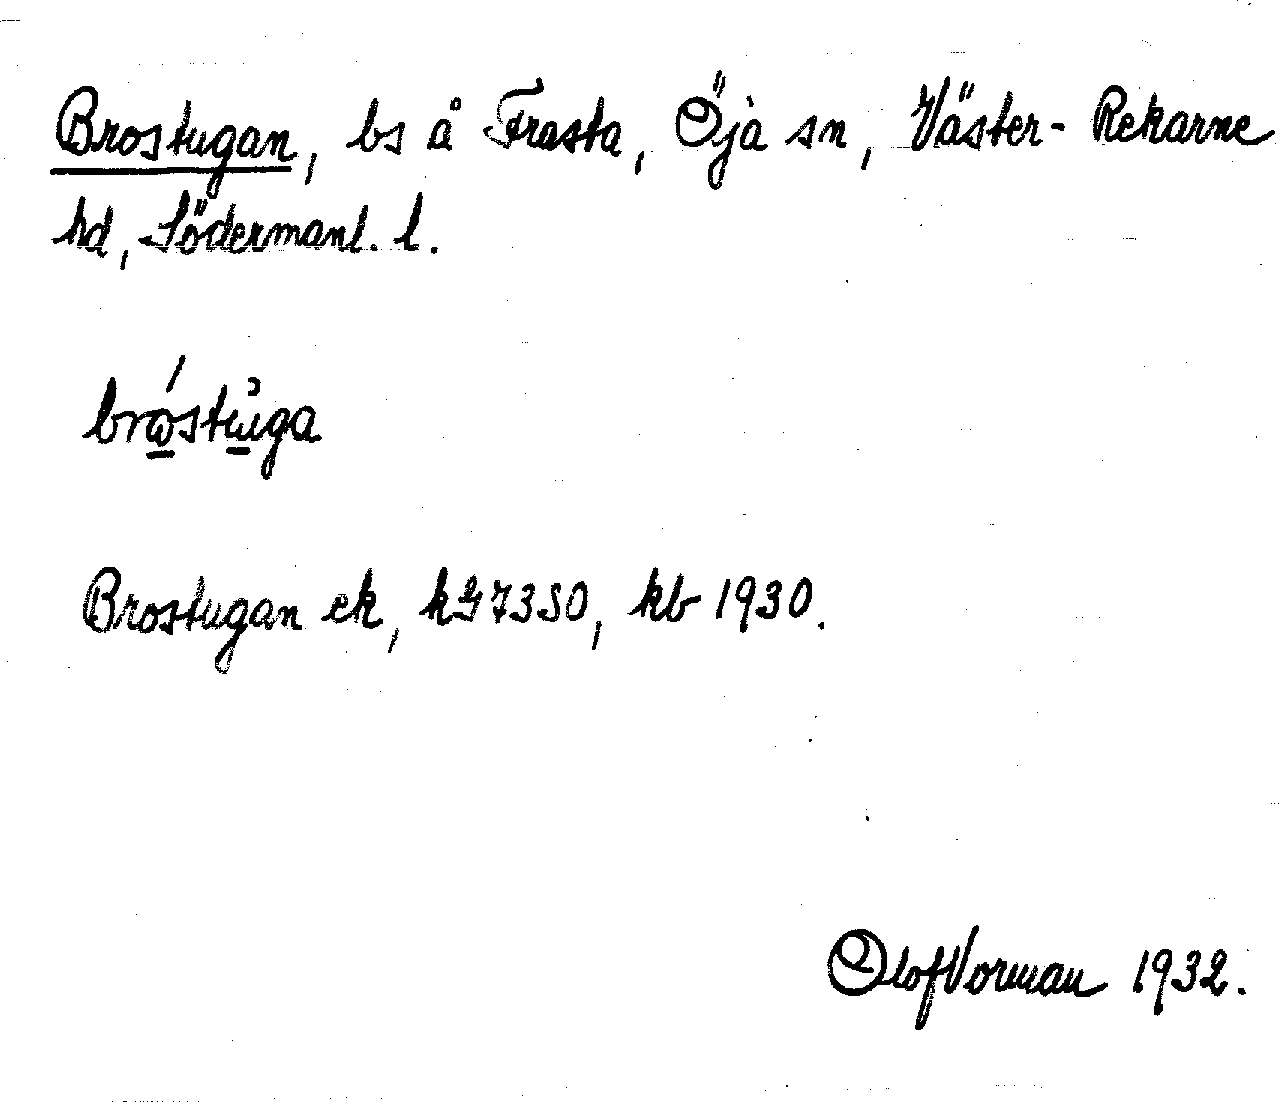 Brostugan, bs å Frasta, Öja sn, Väster-Rekarne
hd, Södermanl. l.
brɷ́stuga
Brostugan ek, kG7350, kb 1930.
Olof Vorman 1932.